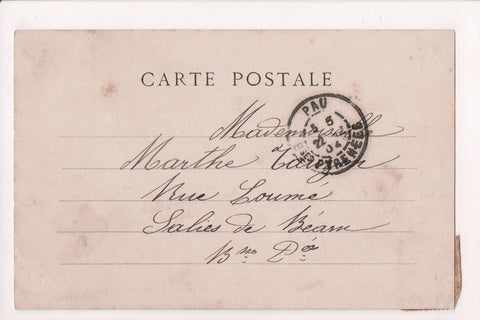 CARTE POSTALE
PAU
BSES PYRENEES
Mademoiselle
Marthe
Rue Loumé
Salies de Béarn
Bses Pées